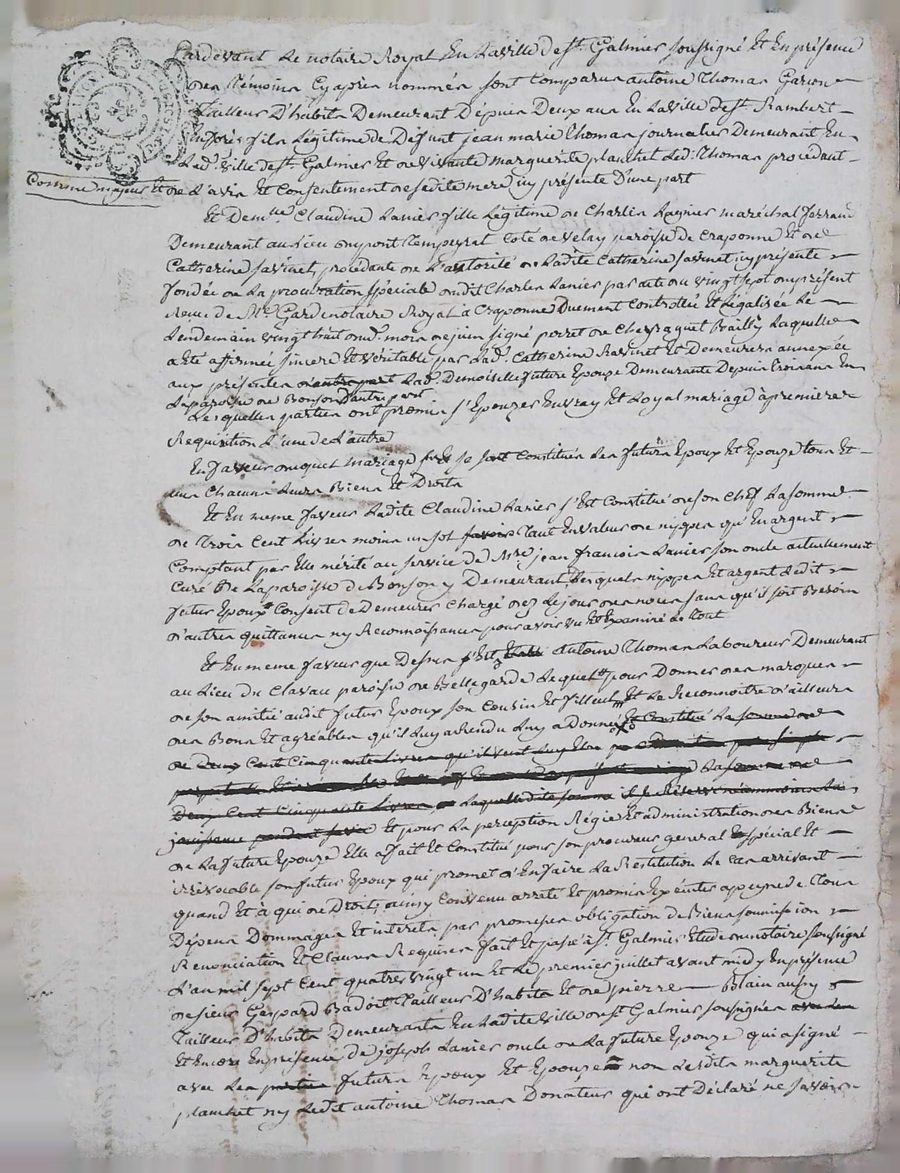 Pardevant Le notaire Royal En La ville de St. Galmier soussigné Et En présence
Des témoins Cy après nommés sont comparus antoine Thomas Garçon
Tailleur D'habits Demeurant Dépuis Deux ans En La ville de St. Rambert
fils Légitime de Défunt jean marie Thomas journalier Demeurant En
Lad. ville de St. Galmier Et De vivante marguerite planchet Led. Thomas procédant
Comme majeur Et De L'avis Et Consentement De sadite mere icy présente D'une part
Et Demlle Claudine Lanier fille Légitime De Charles Lanier maréchal ferrand
Demeurant au Lieu du pont Côté De velay paroisse de Craponne Et De
Catherine Savinet, procédante De L'autorité De Ladite Catherine Savinet icy présente
fondée De La procuration spéciale dudit Charles Lanier par acte du vingt sept du présent
Reçue De Me. Gardi notaire Royal à Craponne Duement Controllée Et Légalisée Le
Lendemain vingt huit dud. mois De juin signé De Bailly Laquelle
a Eté affirmée sincere Et véritable par Lad. Catherine Savinet Et Demeurera annexée
aux présentes d'autre part Lad. Demoiselle future Epouze Demeurante Depuis trois ans En
La paroisse De Bonson D'autre part
Lesquelles parties ont promis s'Epouzer En vray Et Loyal mariage à premiere
Requisition L'une de L'autre
En faveur duquel mariage se sont Constitués Les futurs Epoux Et Epouze tous Et
uns Chacuns Leurs Biens Et Droits
Et En meme faveur Ladite Claudine Lanier s'Est Constitué De son Chef La somme
De Trois Cent Livres moins un sol Tant En valeur De nippes qu'En argent
Comptant par Elle mérité au service de Mre. jean francois Lanier son oncle actuellement
Curé De La paroisse de Bonson y Demeurant, Desquels nippes Et argent Ledit
futur Epoux Consent de Demeurer Chargé Dez Le jour Des noces sans qu'il soit Besoin
D'autres quittances ny Reconnoissances pour avoir vu Et Examiné Le tout
Et En meme faveur que Dessus s'Est Etabli antoine Thomas Laboureur Demeurant
au Lieu du Clavau paroisse De Bellegarde Lequel pour Donner Des marques
De son amitié audit futur Epoux son Cousin Et filleul, Et Le Reconnoitre D'ailleurs
Des Bons Et agréables qu'il Luy a rendu Luy a Donné Et Constitué La somme De
De Deux Cent Cinquante Livres qu'il veut Luy Etre
La somme De
Deux Cent Cinquante Livres Laquelle dite somme il se Réserve
jouissance pendant sa vie Et pour La perception Régie Et administration Des Biens
De La future Epouze Elle a fait Et Constitué pour son procureur general Et spécial Et
irrévocable son futur Epoux qui promet D'En faire La Restitution Le Cas arrivant
quand Et à qui De Droit; ainsy Convenu arreté Et promis Exécuter a peyne de Tous
Dépens Dommages Et interets par promesses obligation de Biens soumission
Renonciation Et Clauses Requises fait Et passé à St. Galmier Etude du notaire soussigné
L'an mil sept Cent quatre vingt un Et Le premier juillet avant midy En présence
De sieur Gaspard Badoit Tailleur D'habits Et De pierre Blain aussy
Tailleur D'habits Demeurants En Ladite ville De St. Galmier soussignés avec Les
Et Encore En présence de joseph Lanier oncle De La future Epouze qui a signé
avec Les parties futurs Epoux Et Epouze non Ladite marguerite
planchet ny Ledit antoine Thomas Donateur qui ont Déclaré ne savoir